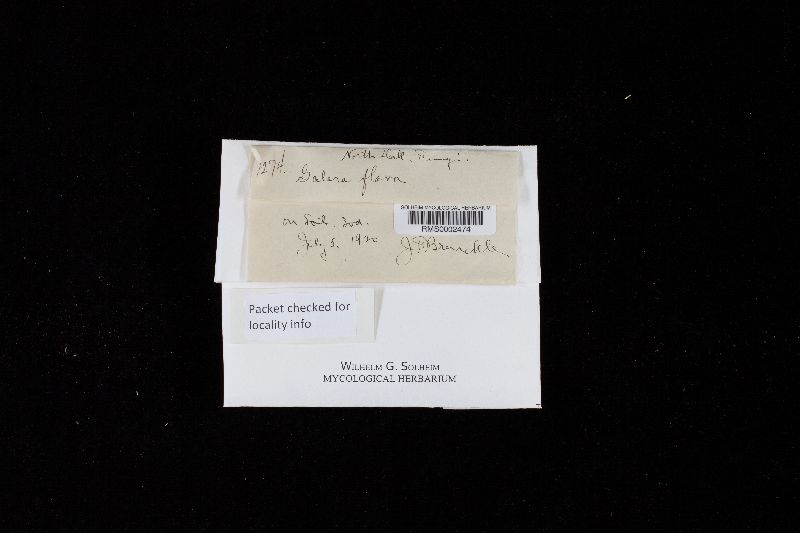 North Dak. Fungi.
1274.
Galera flava.
on Soil. Sod.
July 5, 1920
J.F. Brenckle.
SOLHEIM MYCOLOGICAL HERBARIUM
RMS0002474
Packet checked for
locality info
WILHELM G. SOLHEIM
MYCOLOGICAL HERBARIUM